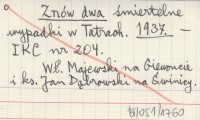 Znów dwa śmiertelne
wypadki w Tatrach. 1937. —
IKC nr 204.
Wł. Majewski na Giewoncie
i ks. Jan Dąbrowski na Świnicy.
/1760